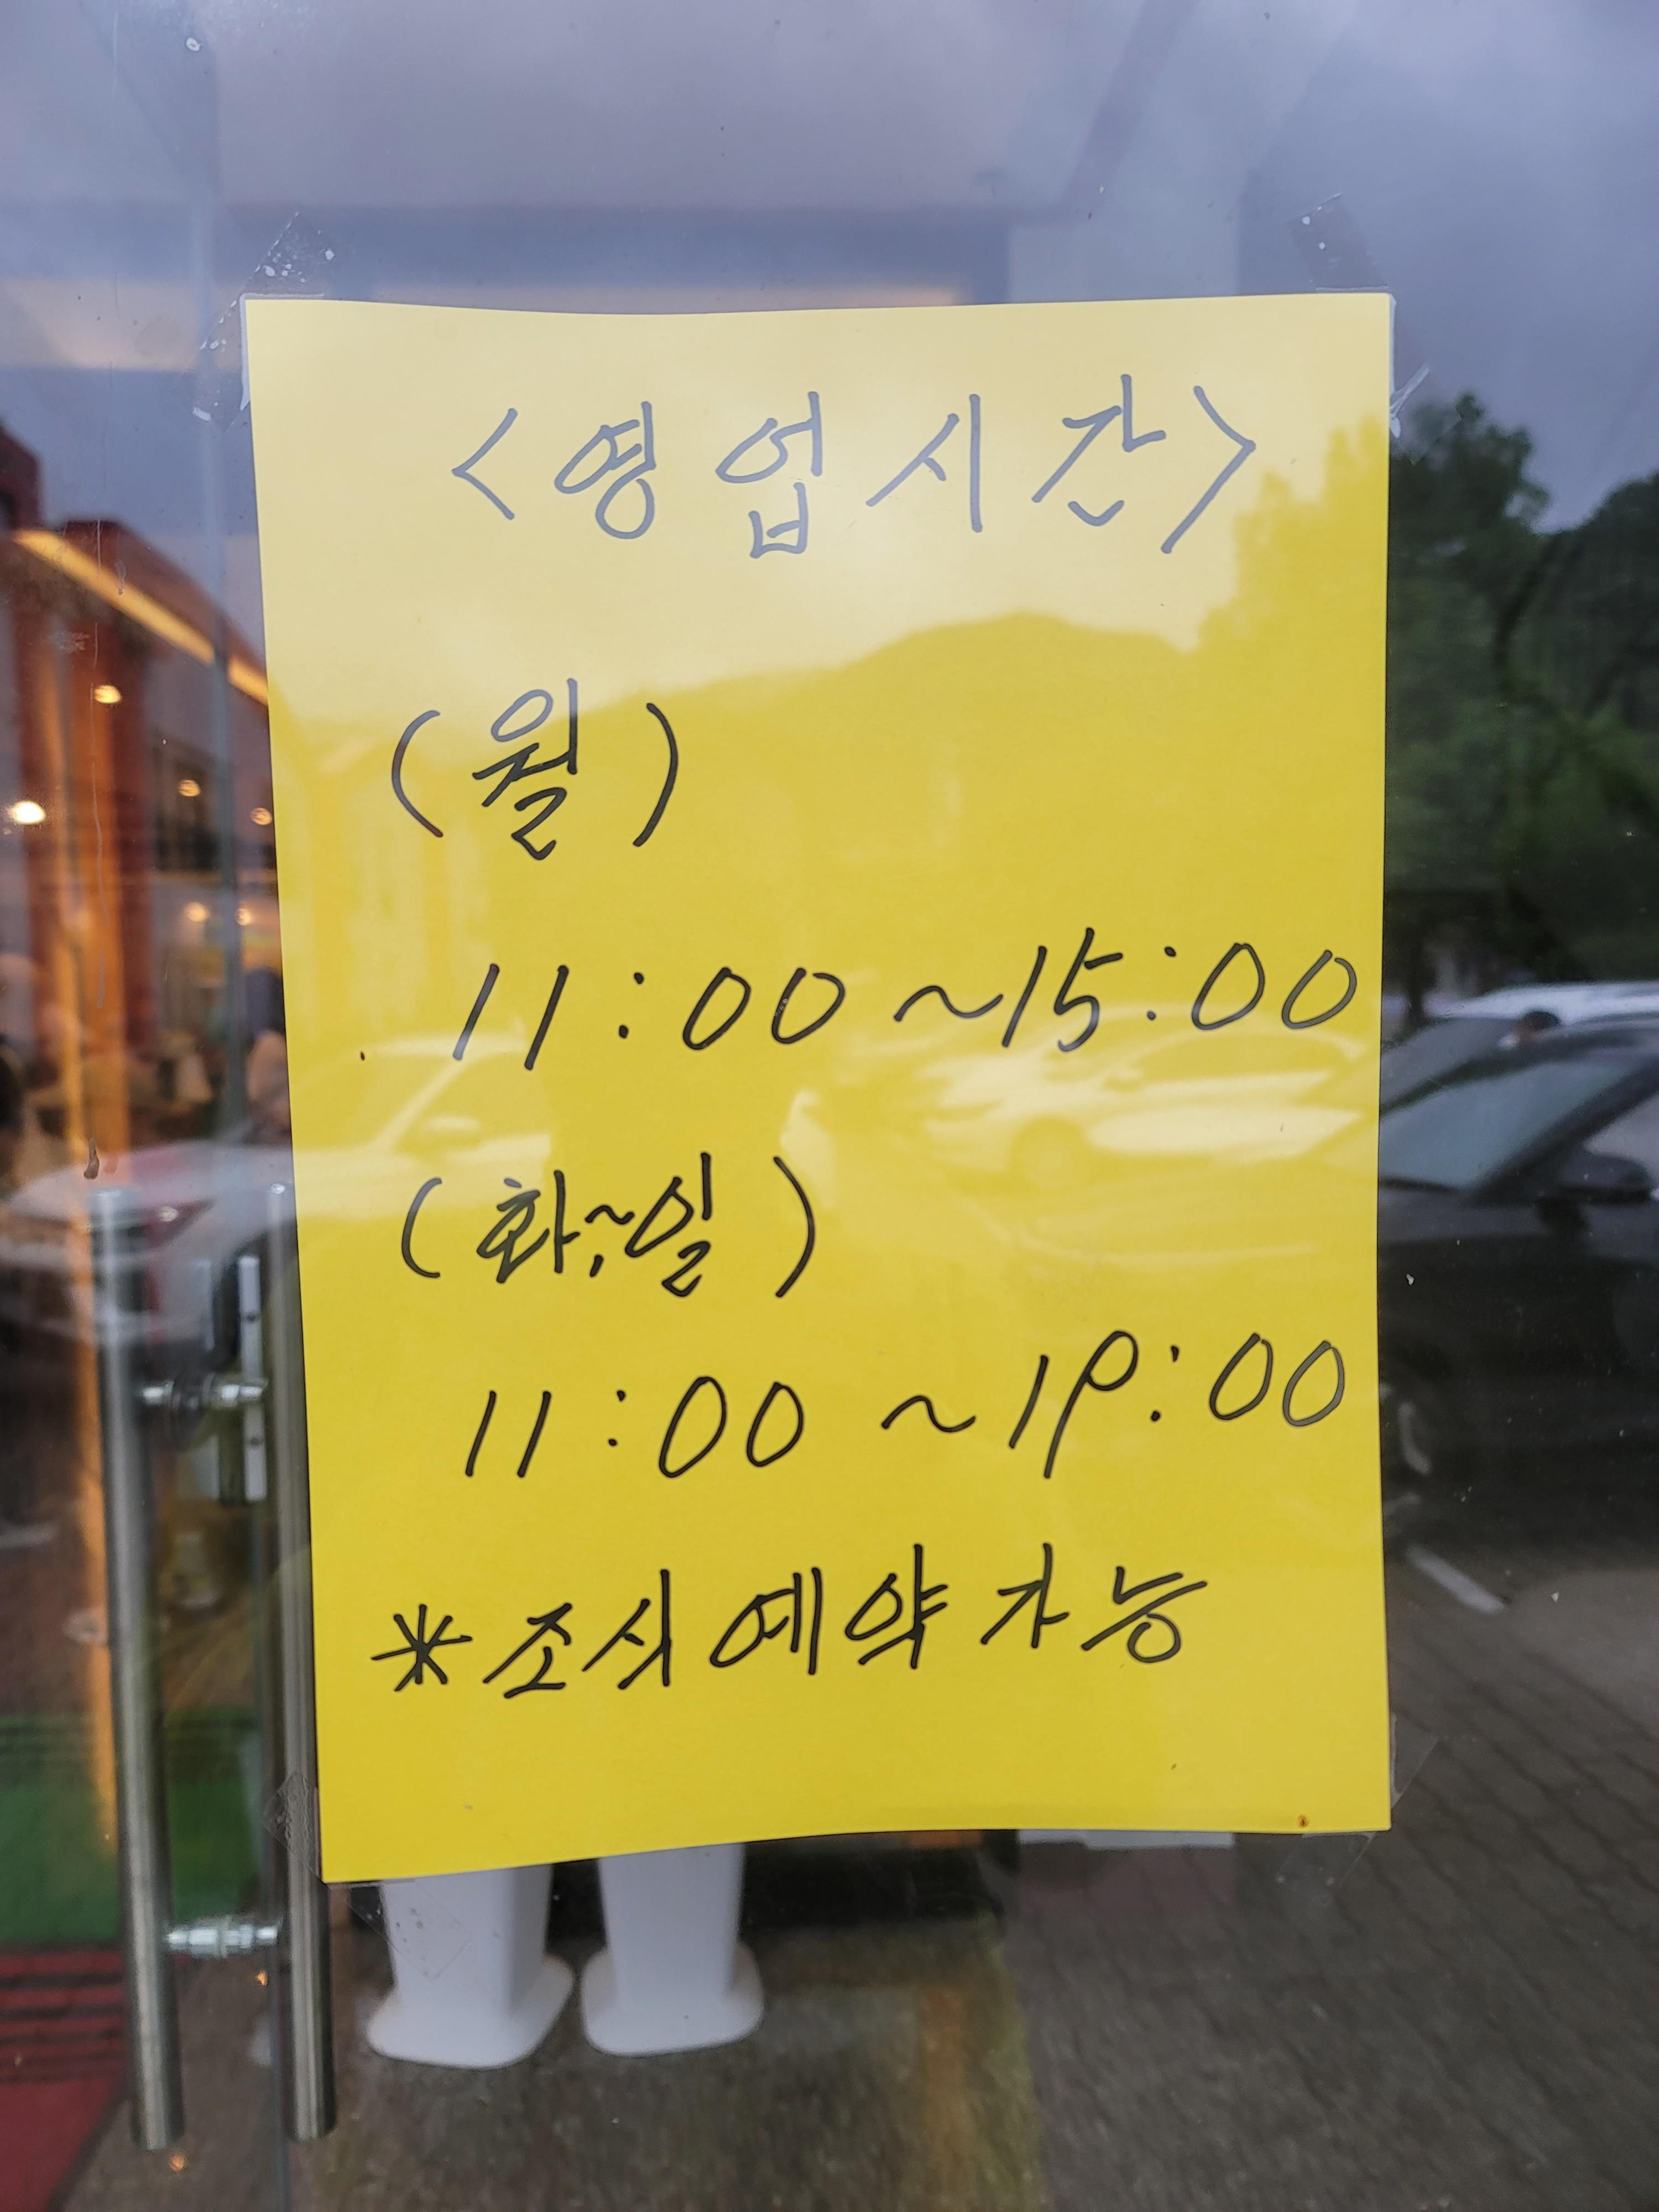 <영업시간>
(월)
11:00~15:00
(화~일)
11:00~19:00
*조식예약가능